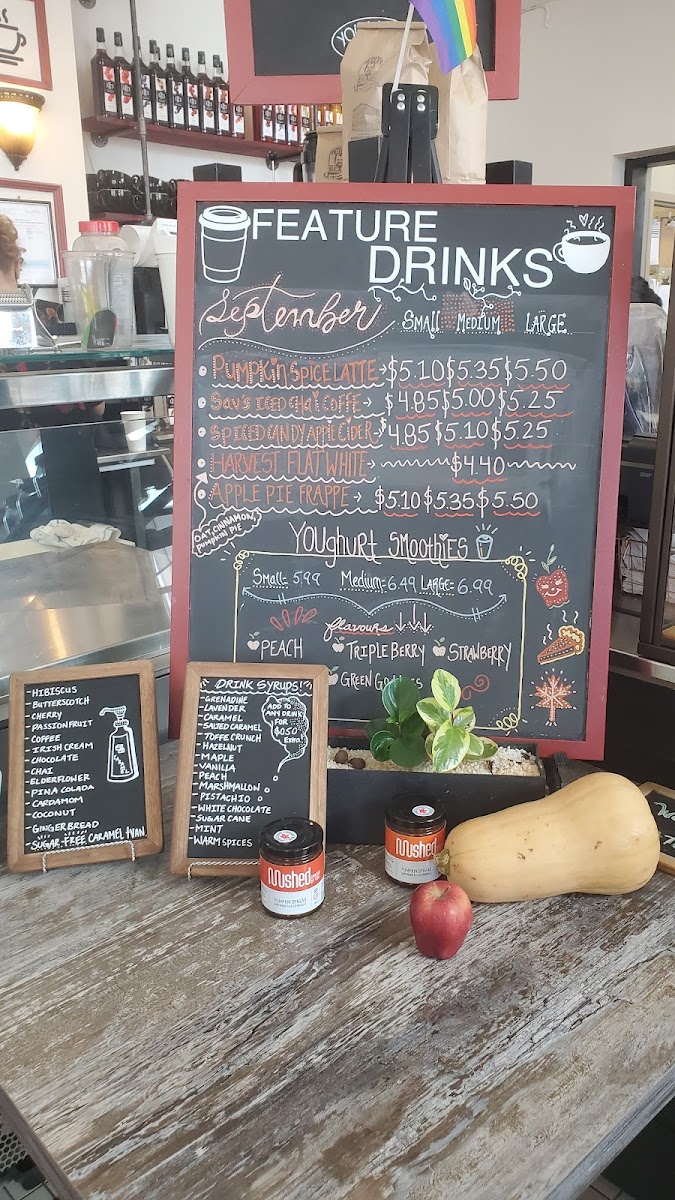 FEATURE
DRINKS
September
SMALL MEDIUM LARGE
• PUMPKIN SPICE LATTE → $5.10 $5.35 $5.50
• SAV'S ICED CHAI COFFE → $4.85 $5.00 $5.25
• SPICED CANDY APPLE CIDER → $4.85 $5.10 $5.25
• HARVEST FLAT WHITE → $4.40
• APPLE PIE FRAPPE → $5.10 $5.35 $5.50
OAT, CINNAMON,
PUMPKIN PIE
YOUghurt Smoothies
Small= 5.99 Medium= 6.49 LARGE= 6.99
flavours
PEACH TRIPLE BERRY STRAWBERRY
GREEN
- HIBISCUS
- BUTTERSCOTCH
- CHERRY
- PASSIONFRUIT
- COFFEE
- IRISH CREAM
- CHOCOLATE
- CHAI
- ELDERFLOWER
- PINA COLADA
- CARDAMOM
- COCONUT
- GINGERBREAD
- SUGAR FREE CARAMEL + VAN
DRINK SYRUPS!
- GRENADINE
- LAVENDER
- CARAMEL
- SALTED CARAMEL
- TOFFE CRUNCH
- HAZELNUT
- MAPLE
- VANILLA
- PEACH
- MARSHMALLOW
- PISTACHIO
- WHITE CHOCOLATE
- SUGAR CANE
- MINT
- WARM SPICES
ADD TO
ANY DRINK
FOR
$0.50
EXTRA!
Mushed
PUMPKIN SPICE
Mushed